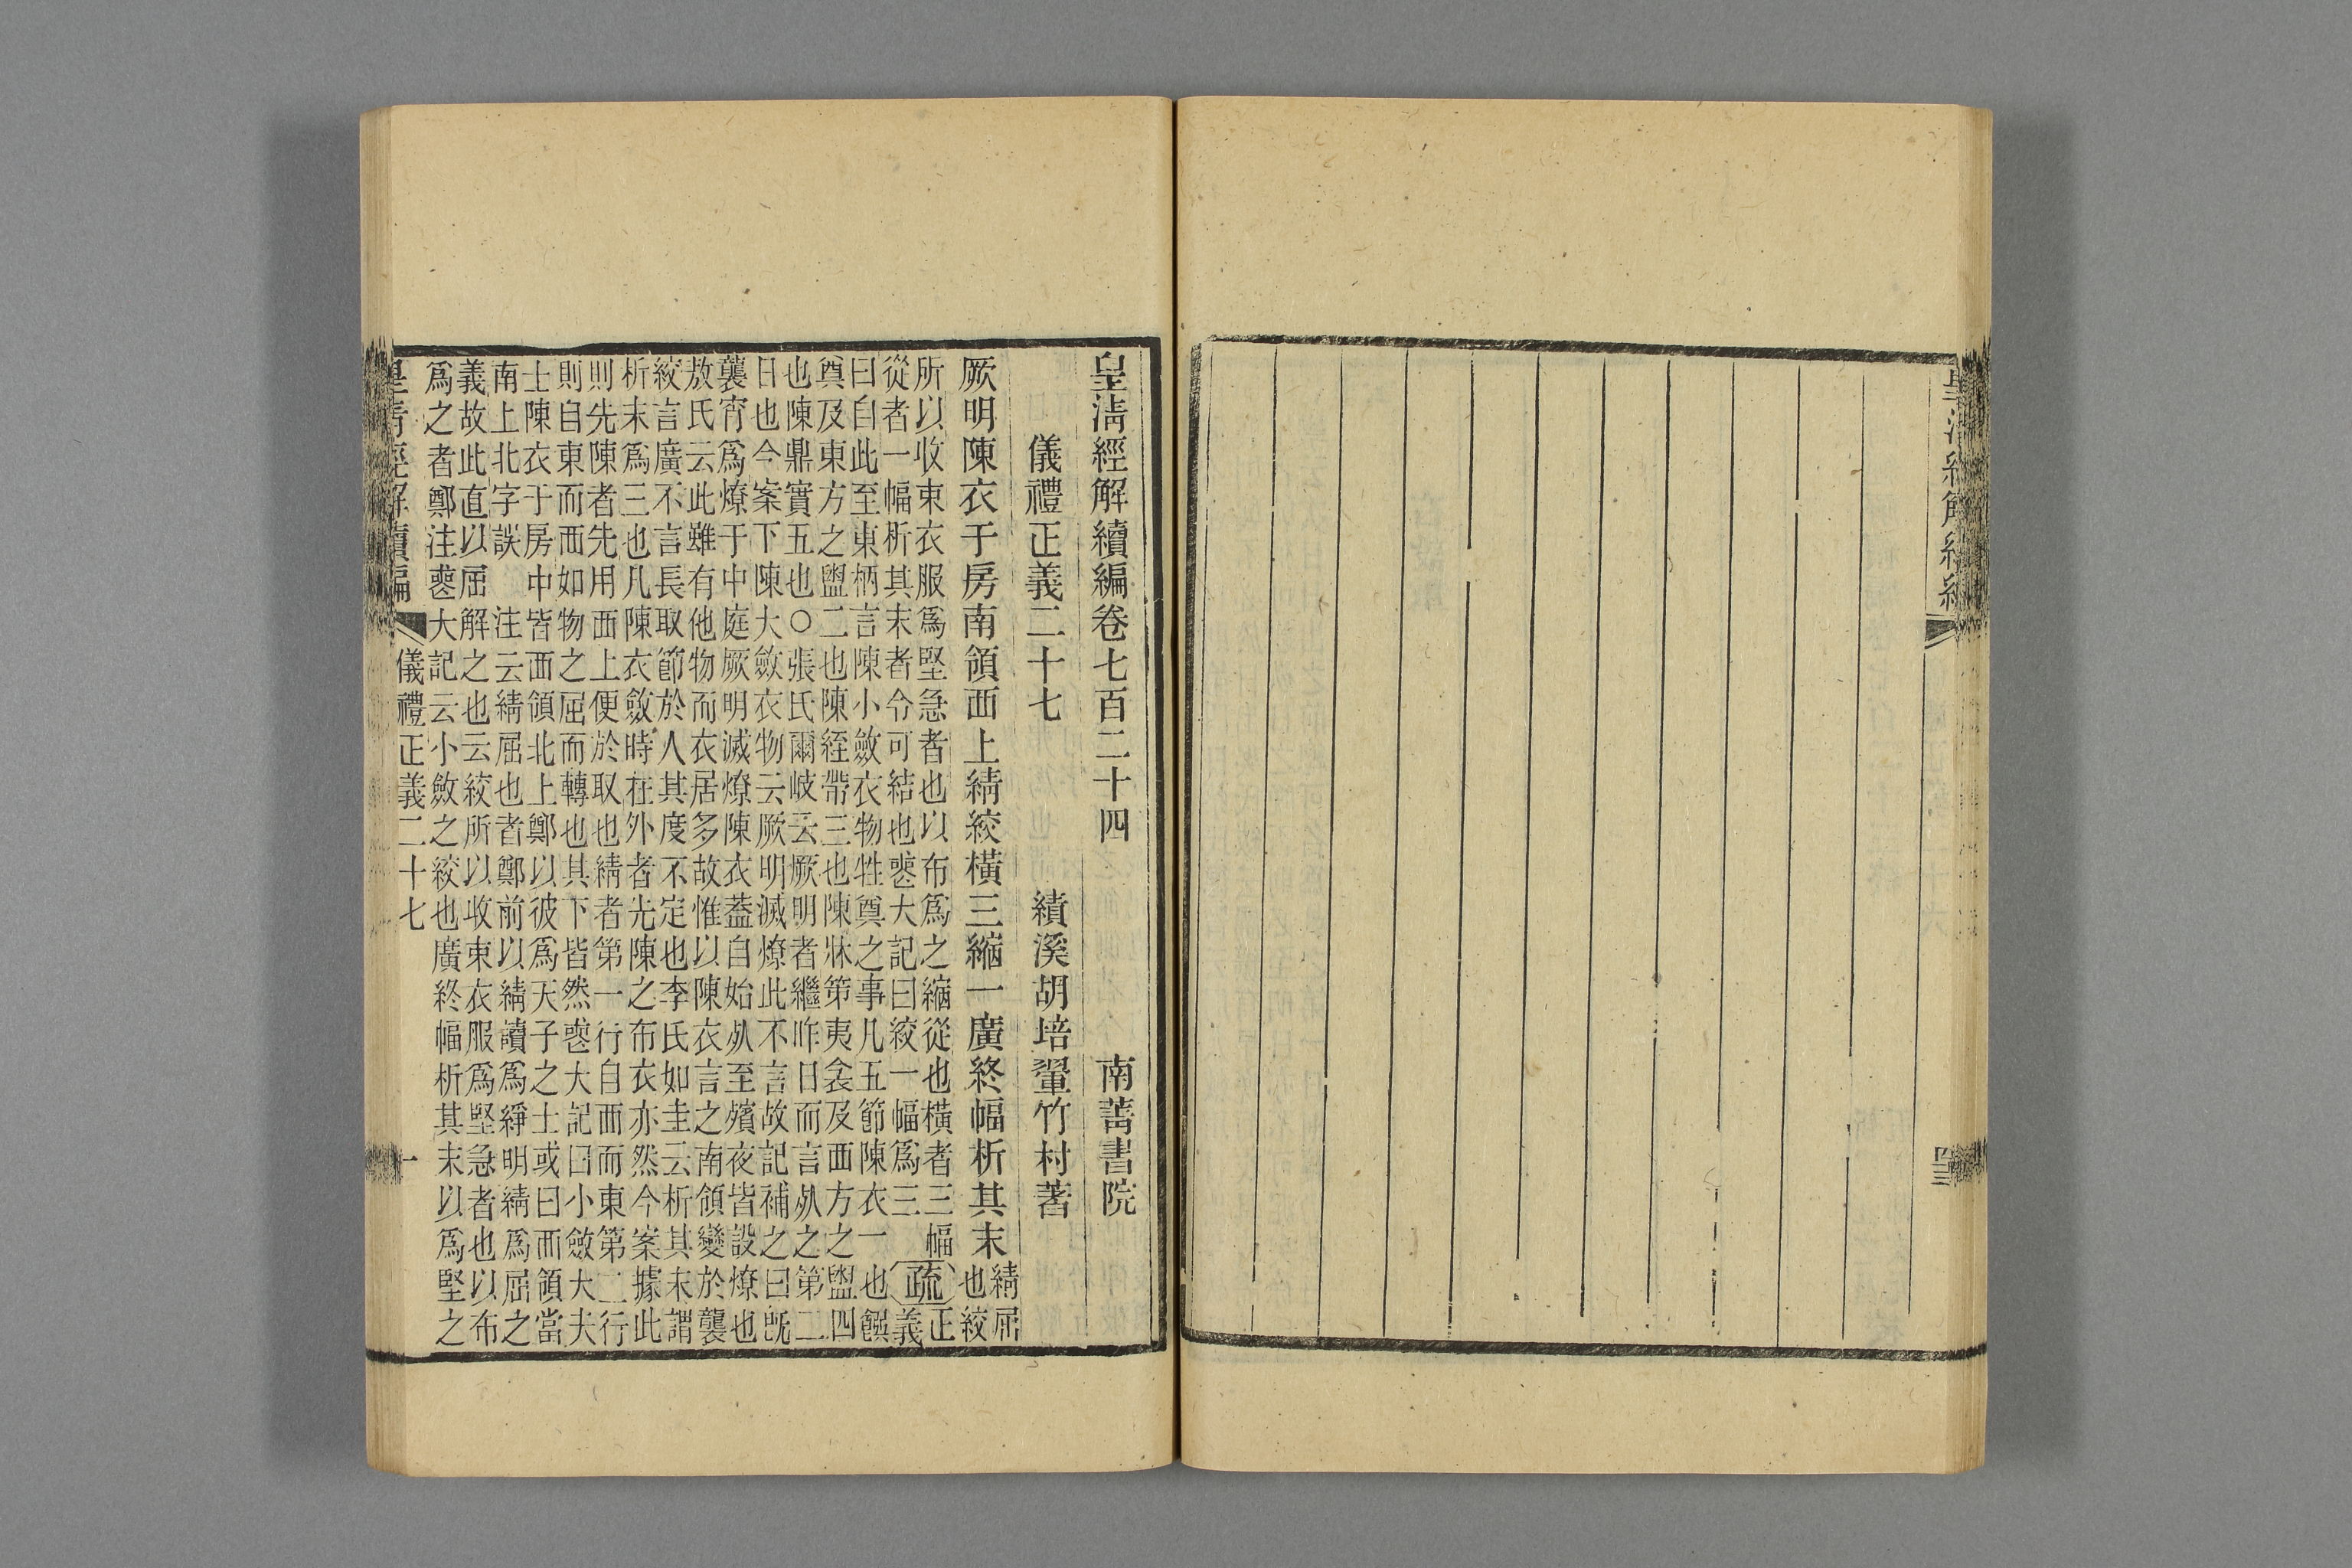 皇淸經解續編卷七百二十四 南菁書院
儀禮正義二十七 績溪胡培翬竹村著
厥明陳衣于房南領西上綪絞橫三縮一廣終幅析其末綪屈也絞
所以收束衣服爲堅急者也以布爲之縮從也橫者三幅
從者一幅析其末者令可結也喪大記曰絞一幅爲三 疏 正義
曰自此至東柄言陳小斂衣物牲奠之事凡五節陳衣一也饌
奠及東方之盥二也陳絰帶三也陳牀笫夷衾及西方之盥四
也陳鼎實五也○張氏爾岐云厥明者繼昨日而言死之第二
日也今案下陳大斂衣物云厥明滅燎此不言故記補之曰旣
襲宵爲燎于中庭厥明滅燎陳衣蓋自始死至殯夜皆設燎也
敖氏云此雖有他物而衣居多故惟以陳衣言之南領變於襲
絞言廣不言長取節於人其度不定也李氏如圭云析其末謂
析末爲三也凡陳衣斂時在外者先陳之布衣亦然今案據此
則先陳者先用西上便於取也綪者第一行自西而東第二行
則自東而西如物之屈而轉也其下皆然喪大記曰小斂大夫
士陳衣于房中皆西領北上鄭以彼爲天子之士或曰西領當
南上北字誤 注云綪屈也者鄭前以綪讀爲䋫明綪爲屈之
義故此直以屈解之也云絞所以收束衣服爲堅急者也以布
爲之者鄭注喪大記云小斂之絞也廣終幅析其末以爲堅之
皇淸經解續編 儀禮正義二十七 一